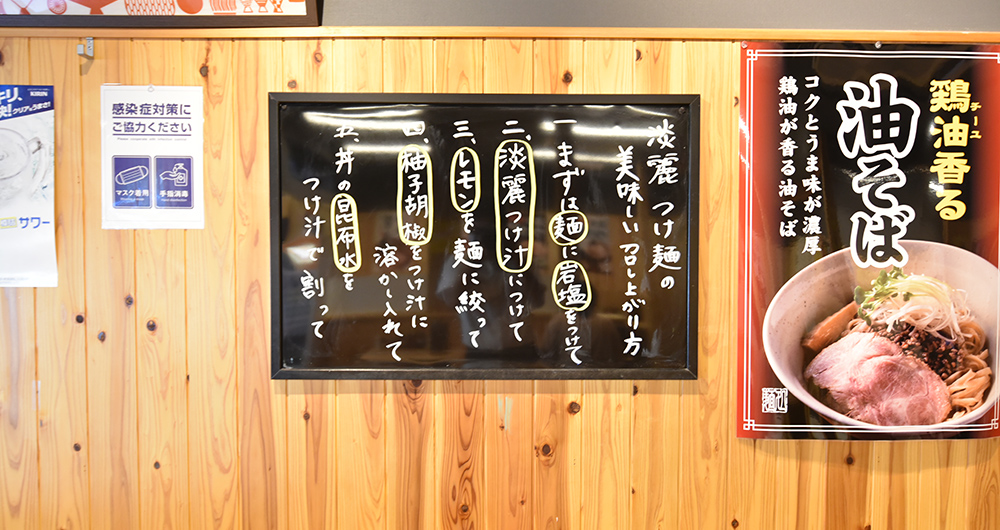 鶏油香る
チーユ
油そば
コクとうま味が濃厚
鶏油が香る油そば
淡麗 つけ麺の
美味しい召し上がり方
一、まずは麺に岩塩をつけて
二、淡麗つけ汁につけて
三、レモンを麺に絞って
四、柚子胡椒をつけ汁に
溶かし入れて
五、丼の昆布水を
つけ汁で割って
感染症対策に
ご協力ください
マスク着用
手指消毒
KIRIN
サワー